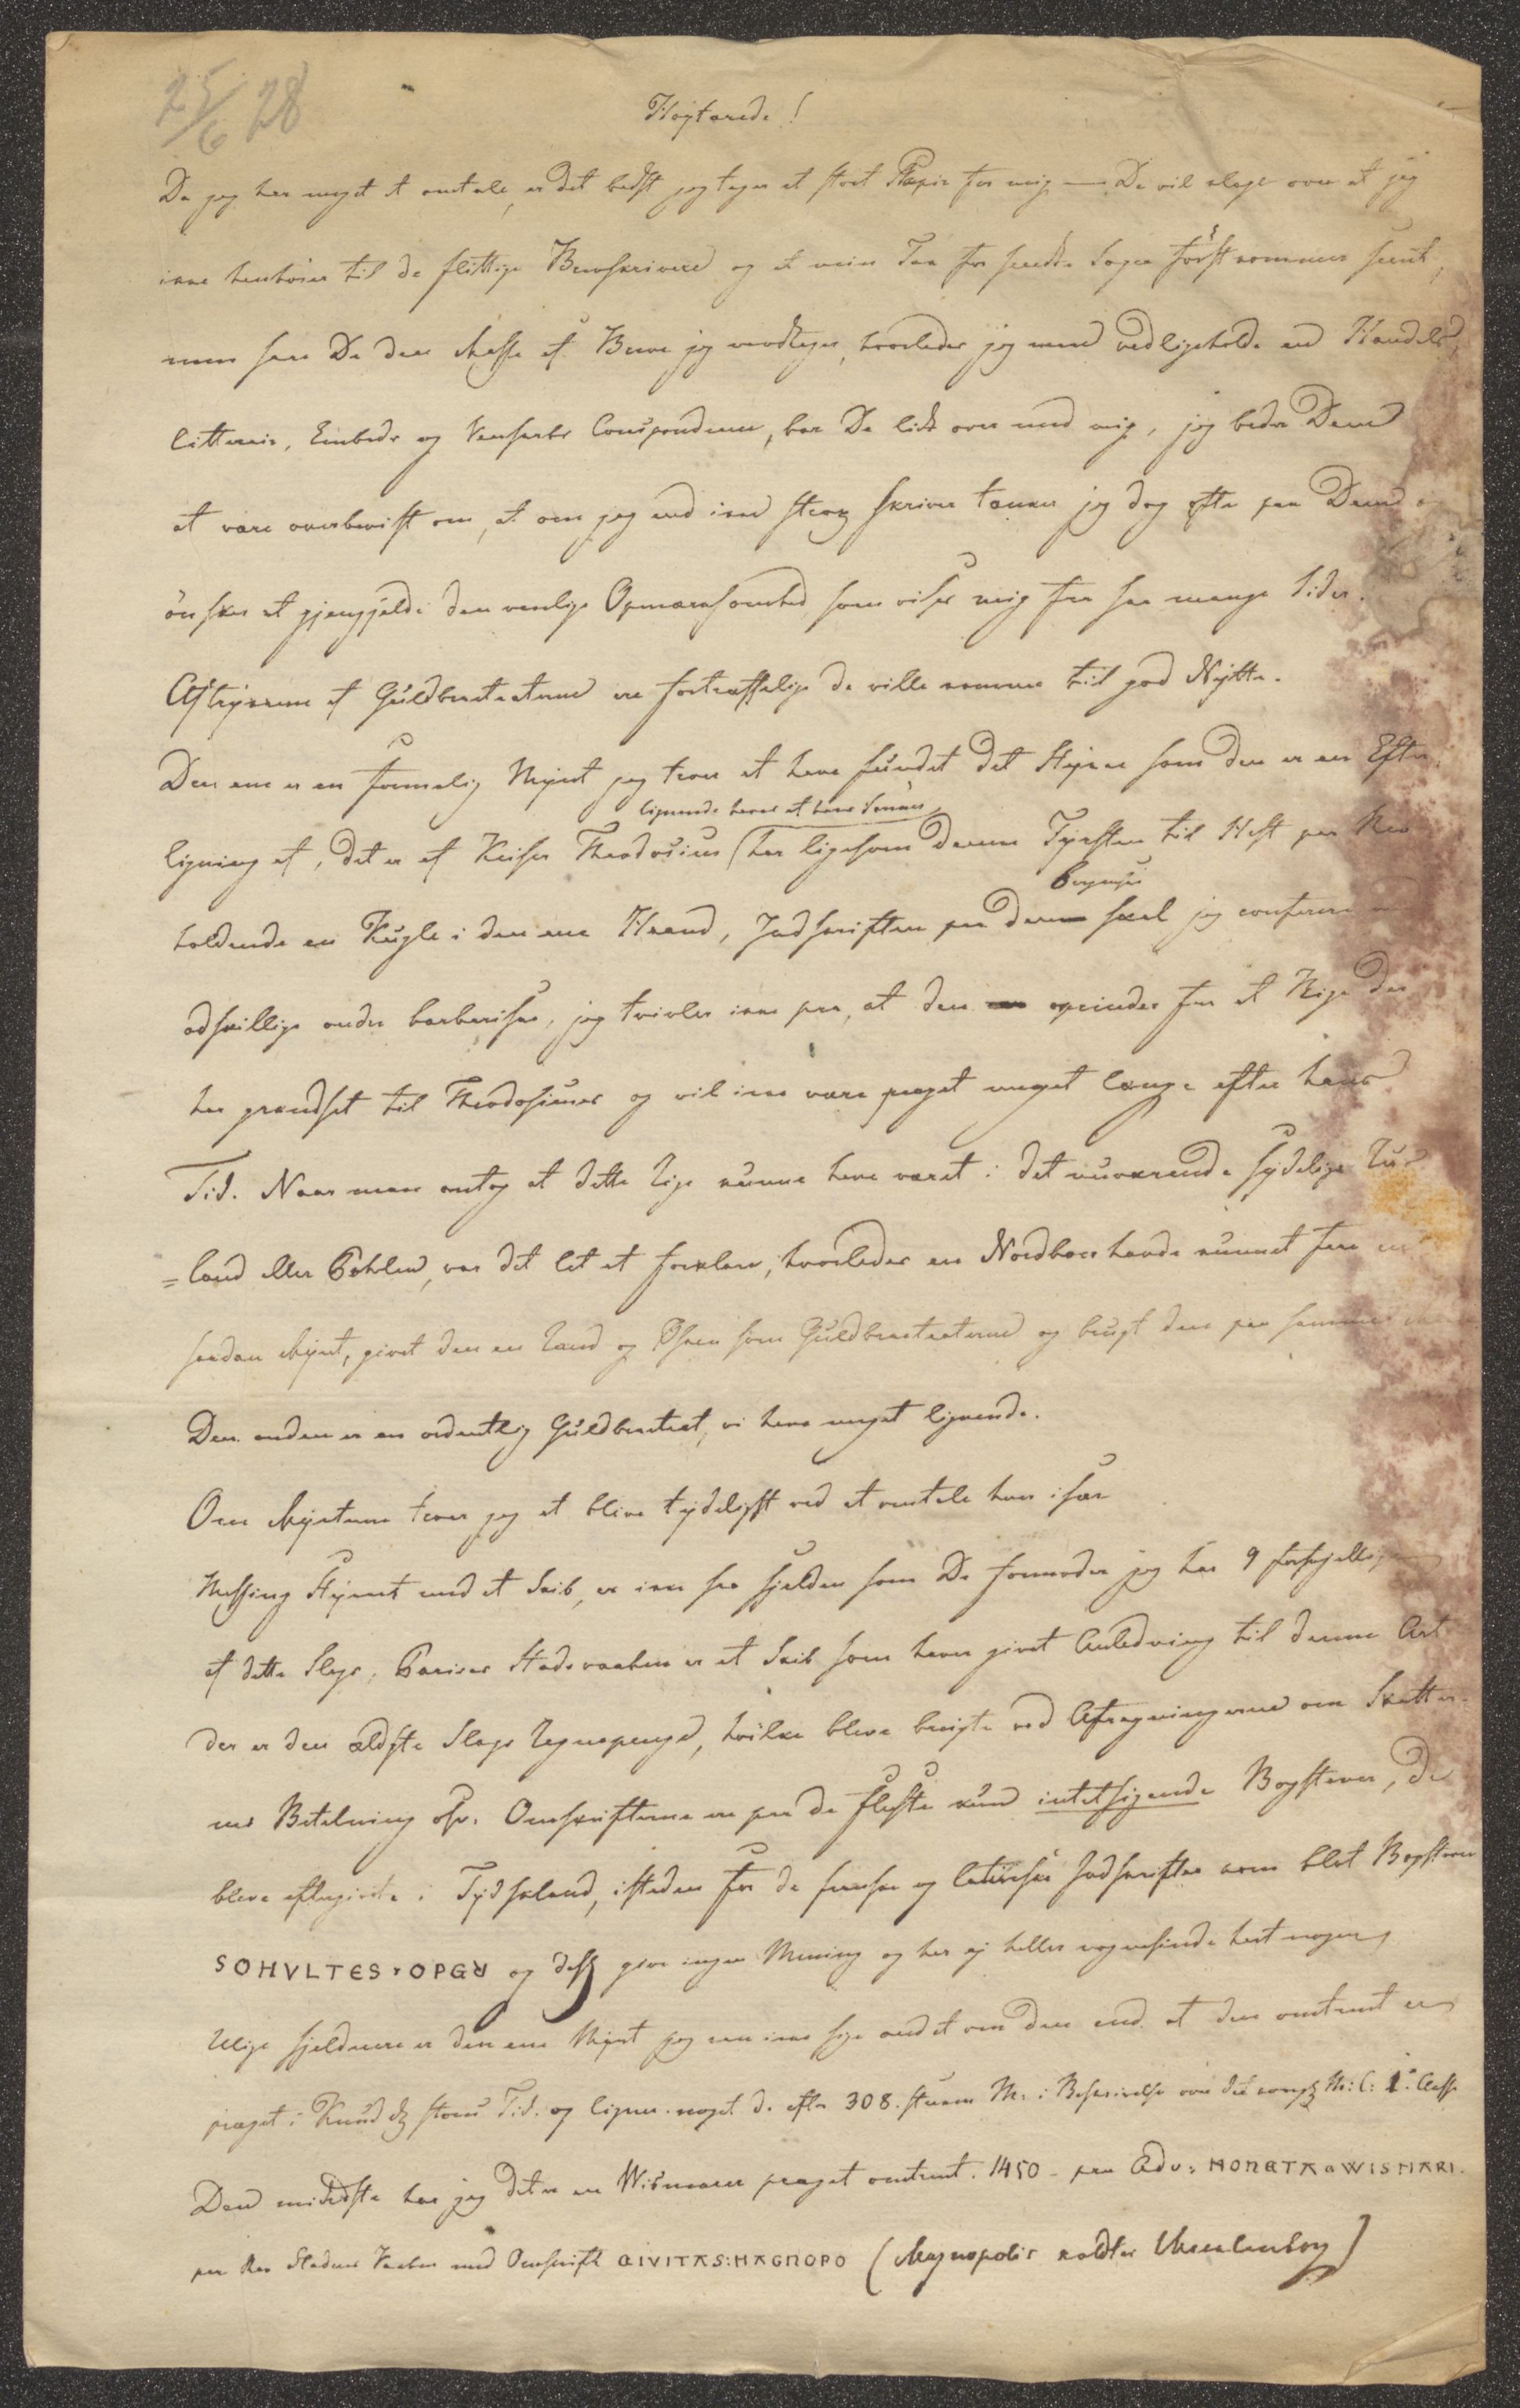 25/6 28
Høytærede!
Da jeg har meget at omtale, er det bedst jeg tager et stort Papir for mig — De vil klage over at jeg
ikke henhører til de flittige Brevskrivere og at min Tak for sendte Sager først kommer seent,
men saae De den Masse af Breve jeg modtager, hvorledes jeg maa vedligeholde en Handels,
litterair, Embeds og Venskabs Correspondence, bar De lidt over med mig, jeg beder Dem
at være overbeviist om, at om jeg end ikke strax skriver tænker jeg dog ofte paa Dem og
önsker at gjengjelde den venlige Opmærksomhed som vises mig fra saa mange Sider.
Aftrykkene af Guldbracteaterne ere fortræffelige de ville komme til god Nytte.
Den ene er en formelig Mynt jeg troer at have fundet det Stykke som den er en Efter-
ligning af, det er af Keiser Theodosius (har ligesom denne Fyrsten til Hest paa Rev
lignende haves af hans Sönner
holdende en Kugle i den ene Haand, Indskriften paa denne skal jeg conferere med
Bagside
adskillige andre barbariske, jeg tvivler ikke paa, at den oprinder fra et Rige der
har grændset til Theodosius's og vil ikke være præget meget længe efter hans
Tid. Naar man antog at dette Rige kunne have været i det nuværende sydelige Rus
=land eller Pohlen, var det let at forklare, hvorledes en Nordboer havde kunnet faae en
saadan Mynt, givet den en Rand og Øsken som Guldbracteaterne og brugt den paa samme
Den anden er en ordentlig Guldbracteat, vi have meget lignende.
Om Mynterne troer jeg at blive tydeligst ved at omtale hver især
Messing Stykket med et Skib, er ikke saa sjelden som De formoder jeg har 9 forskjellige
af dette Slags, Parises Stadsvaaben er et Skib som haver givet Anledning til denne Art
der er den ældste Slags Regnepenge, hvilke bleve brugte ved Afregningerne om Skatter-
nes Betalning osv. Omskrifterne ere paa de fleste kun intetsigende Bogstaver, De
bleve eftergjorte i Tydskland, isteden for de franske og latinske Indskrifter kom blot Bogstaver
SOHVLTES·OPGR og desl give ingen Mening og har ej heller nogensinde havt nogen
Ulige sjeldnere er den ene Mynt jeg kan ikke sige andet om den end at den omtrent er
præget i Knud d store Tid. og ligner noget d. efter 308. svenske M: i Beskrivelse over det kongl M: C: 1. Classe
Den mindste har jeg det er en Wismarer præget omtrent. 1450 - paa Adv: MONETA o WISMARI.
paa Rev Stadens Vaaben med Omskrift CIVITAS:MAGNOPO (Magnopolis kaldtes Meklenborg)